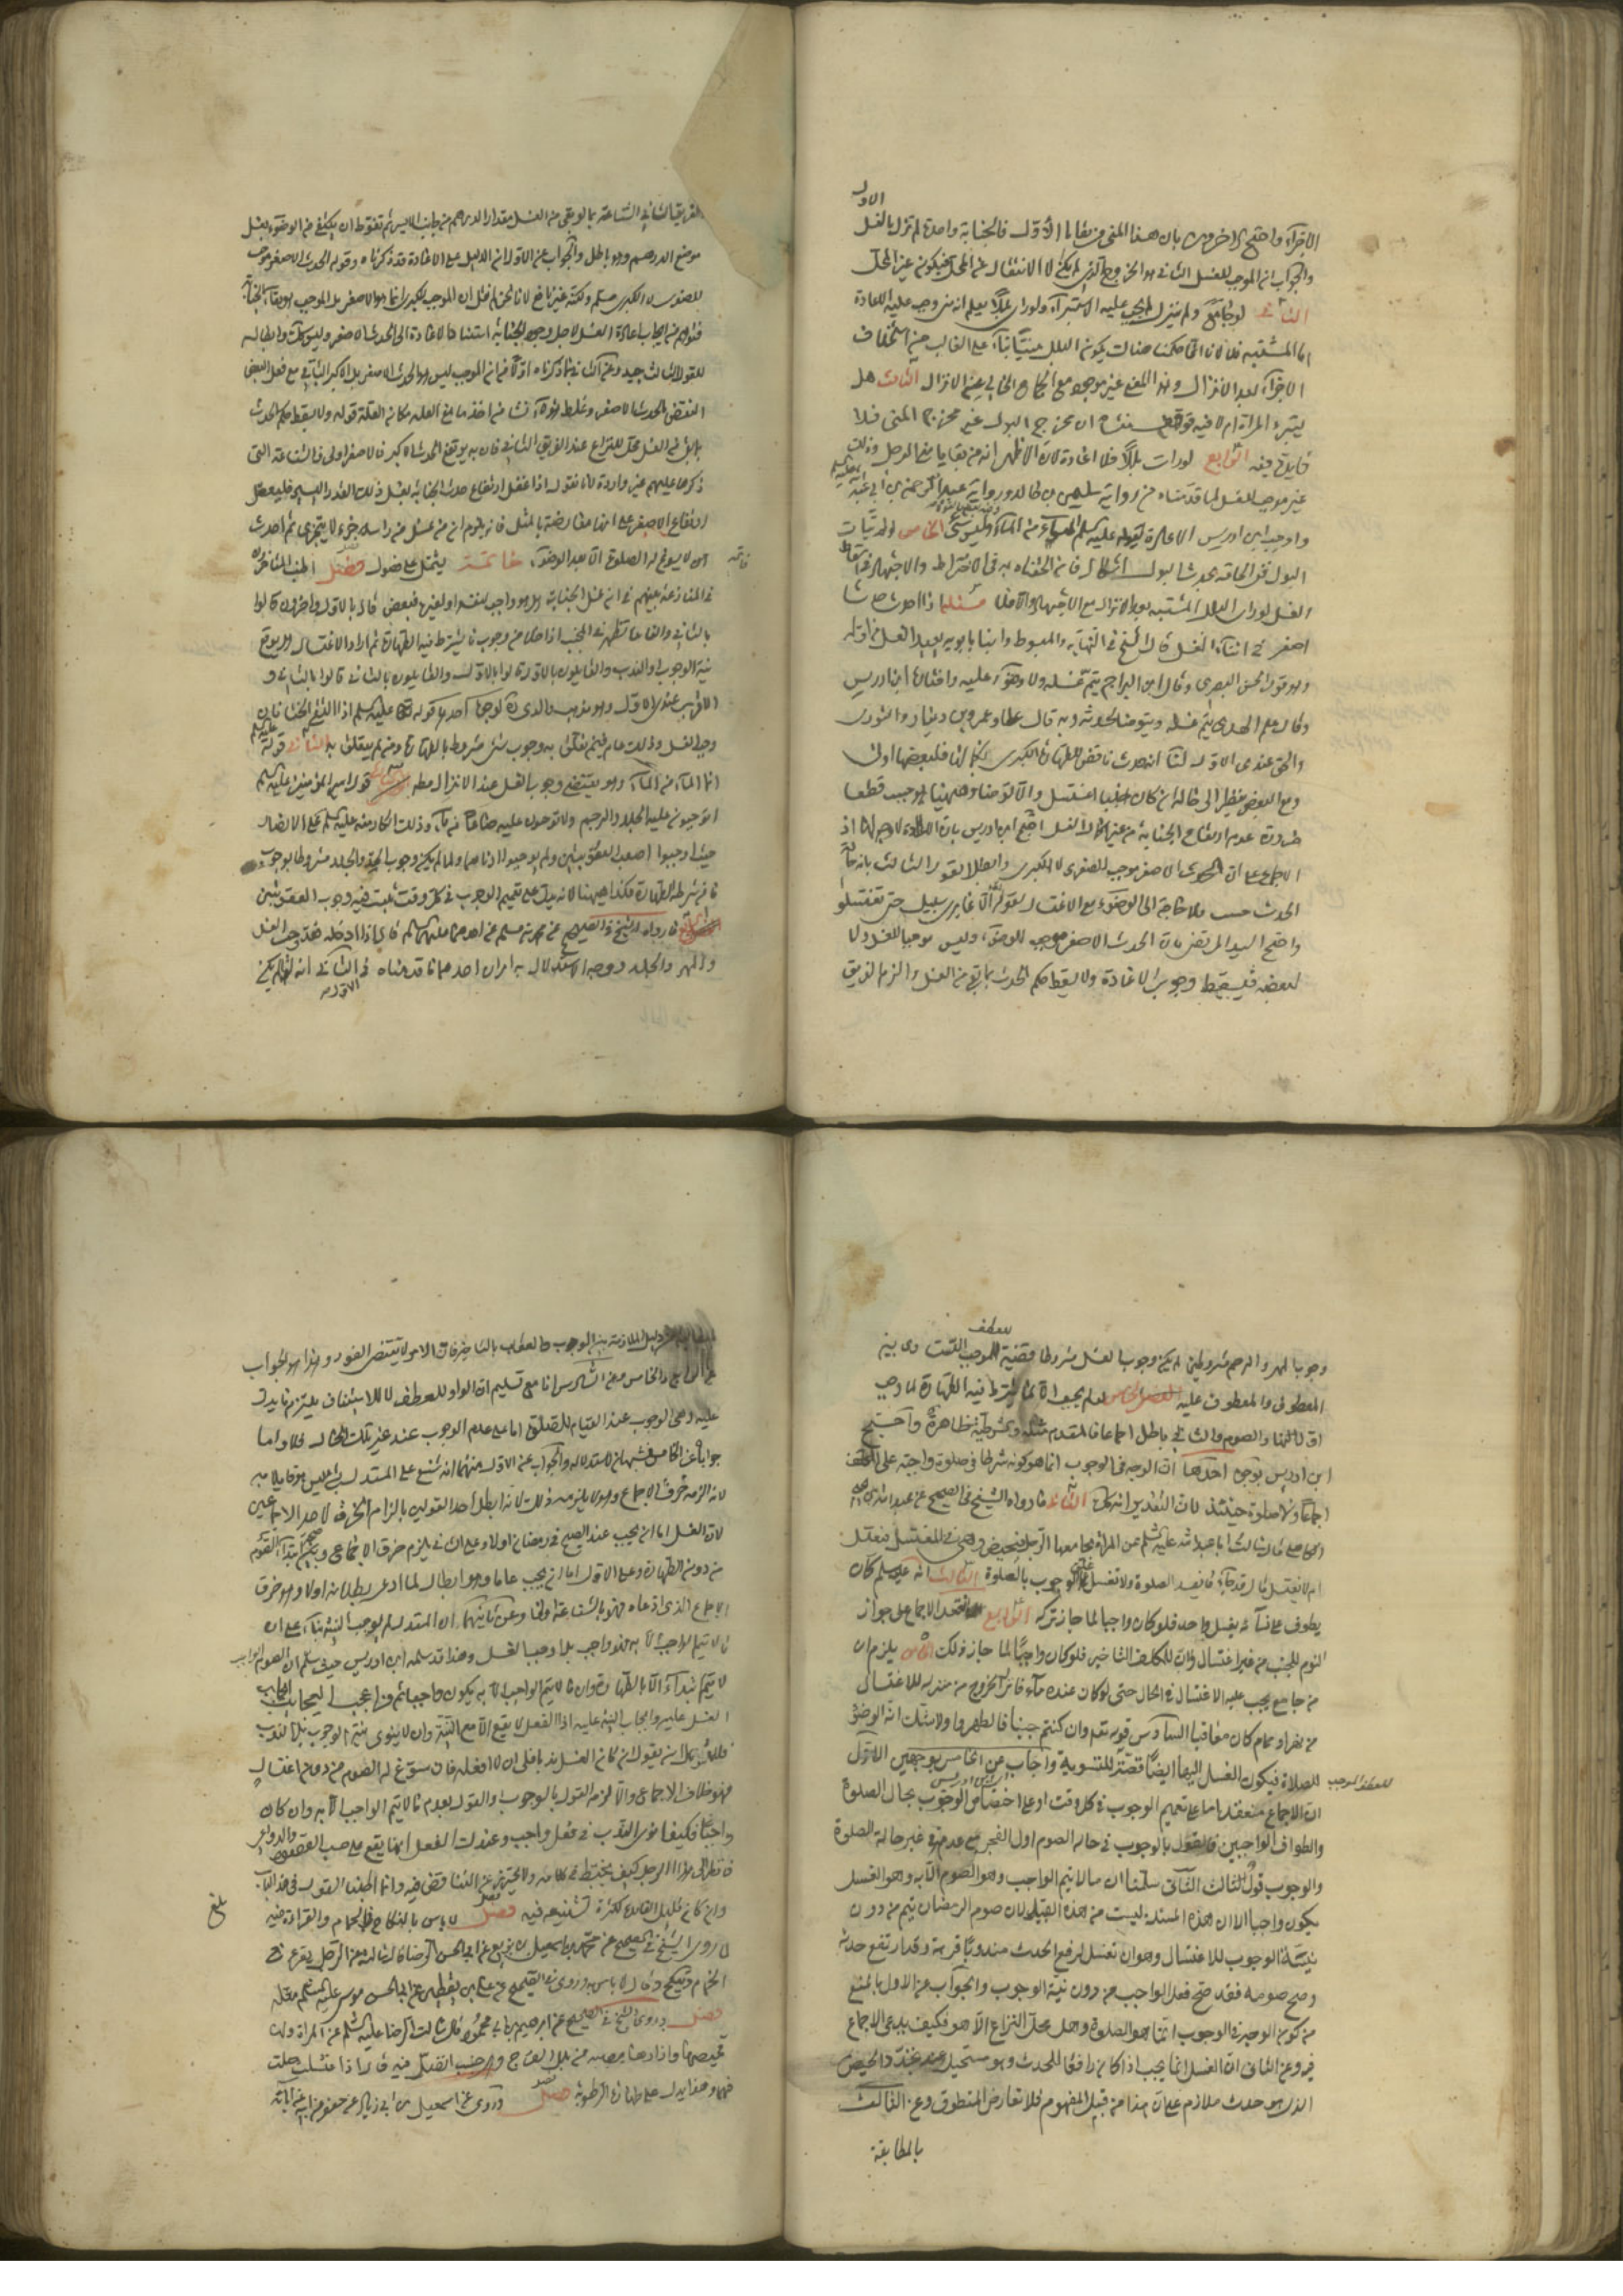 الاول
الاجزاء واحتج الاخرون بان هذا المنى من بقايا الاول فالجنابة واحدة لم تزل بالغسل
والجواب ان الموجب للغسل الثانى هو الخروج الذى لم يكن لا الانتقال عن المحل فيكون عن المحل
الثانى لو جامع ولم ينزل لم يجب عليه الاستبراء ولو راى بللا يعلم انه منى وجب عليه الاعادة
اما المشتبه فلا لانا انما حكمنا هناك بكون البلل منيا بناء على الغالب من استخلاف
الاجزاء بعد الانزال وهذا المعنى غير موجود مع الجماع الخالى عن الانزال الثالث هل
تستبرء المراة ام لا فيه توقف منشاه ان مخرج البول غير مخرج المنى فلا
فايدة فيه الرابع لو رات بللا فلا اعادة لان الاظهر انه من بقايا منى الرجل وذلك
غير موجب للغسل لما قدمناه من رواية سليمن بن خالد ورواية عبد الرحمن بن ابى عبد الله
واوجب ابن ادريس الاعادة لقوله عليه السلم الماء من الماء وليس بشى الخامس
البول ففى الحاقه بحدث البول
الغسل لو راى البلل المشتبه بعد الانزال مع الاجتهاد مسئلة اذا احدث حدثا
اصغر فى اثناء الغسل قال الشيخ فى النهاية والمبسوط وابنا بابويه يعيد الغسل من اوله
وهو قول الحسن البصرى وقال ابن البراج يتم غسله ولا وضوء عليه واختاره ابن ادريس
وقال علم الهدى يتم غسله ويتوضا لحدثه وبه قال عطا وعمرو بن دينار والثورى
والحق عندى الاول لنا ان الحدث ناقض للطهارة الكبرى بكمالها فلبعضها اولى
ومع البعض ينظر الى حاله ان كان جنبا اغتسل والا توضا وههنا هو جنب قطعا
ضرورة عدم ارتفاع الجنابة من غير اكمال الغسل احتج ابن ادريس بان الاعادة لا وجه لها اذ
الاجماع على ان الحدث الاصغر موجب للصغرى لا الكبرى وابطل القول الثالث بانه حال
الحدث جنب ولا حاجة الى الوضوء مع الاغتسال لقوله الا عابرى سبيل حتى تغتسلوا
واحتج السيد المرتضى بان الحدث الاصغر موجب للوضوء وليس موجبا للغسل ولا
لبعضه فيسقط وجوب الاعادة ولا يسقط حكم الحدث بما بقى من الغسل والزم الفريق
الفريق الثانى الشناعة بما لو بقى من الغسل مقدار الدرهم من جانبه الايسر ثم تغوط ان يكتفى عن الوضوء بغسل
موضع الدرهم وهو باطل والجواب عن الاول ان الدليل على الاعادة قد ذكرناه وقوله الحدث الاصغر موجب
للصغرى لا الكبرى مسلم ولكنه غير نافع لانا نحن لم نقل ان الموجب للكبرى انما هو الاصغر بل الموجب هو بقاء الجنابة
فتوهم من ايجاب اعادة الغسل لاجل وجود الجنابة استناد الاعادة الى الحدث الاصغر وليس كذلك وابطاله
للقول الثالث جيد وعن الثانى بما ذكرناه اولا من ان الموجب ليس هو الحدث الاصغر بل الاكبر الباقى مع فعل البعض
المنتقض بالحدث الاصغر وغلط هؤلاء نشا من اخذ ما مع العلة مكان العلة قوله ولا يسقط حكم الحدث
بما بقى من الغسل محل للنزاع عند الفريق الثانى فان به يرتفع الحدث الاكبر فالاصغر اولى فالشناعة التى
ذكرها عليهم غير واردة لانا نقول اذا عقل ارتفاع حدث الجنابة بغسل ذلك القدر اليسير فليعقل
ارتفاع الاصغر على انها معارضة بالمثل فانه يلزم ان من غسل من راسه جزء لا يتجزى ثم احدث
ان لا يسوغ له الصلوة الا بعد الوضوء خاتمة يشتمل على فصول فصل اطنب المتاخرون
فى المنازعة بينهم فى ان غسل الجنابة هل هو واجب لنفسه او لغيره فبعض قال بالاول واخرون قالوا
بالثانى والفايدة تظهر فى الجنب اذا خلا من وجوب ما يشترط فيه الطهارة ثم اراد الاغتسال هل يوقع
نية الوجوب او الندب والقايلون بالاول قالوا بالاول والقايلون بالثانى قالوا بالثانى و
الاقرب عندى الاول وهو مذهب والدى ره لوجوه احدها قوله عليه السلم اذا التقى الختانان
وجب الغسل وذلك عام فيمن تعلق به وجوب شى مشروط بالطهارة ومن لم يتعلق به الثانى قوله عليه السلم
انما الماء من الماء وهو يقتضى وجوب الغسل عند الانزال مطلقا الثالث قول امير المؤمنين عليه السلم
اتوجبون عليه الجلد والرجم ولا توجبون عليه صاعا من ماء وذلك انكار منه عليه السلم على الانصار
حيث اوجبوا اصعب العقوبتين ولم يوجبوا ادناهما ولما لم يكن وجوب الرجم والجلد مشروطا بوجوب
ما من شرطه الطهارة فكذا ههنا لانه يدل على تعميم الوجوب فى كل وقت ثبت فيه وجوب العقوبتين
الرابع ما رواه الشيخ فى الصحيح عن محمد بن مسلم عن احدهما عليهما السلم قال اذا ادخله فقد وجب الغسل
والمهر والجلد ووجه الاستدلال به امران احدهما ما قدمناه فى الثانى انه لو لم يكن
وجوب المهر والرجم مشروطين لم يكن وجوب الغسل مشروطا قضية للعطف الموجب للتشريك بين
المعطوف والمعطوف عليه الخامس لو لم يجب الا لما يشترط فيه الطهارة لما وجب
اول النهار للصوم والثانى باطل اجماعا فالمقدم مثله والشرطية ظاهرة واحتج
ابن ادريس بوجوه احدها ان الوجه فى الوجوب انما هو كونه شرطا فى صلوة واجبة على المكلف
اجماعا ولا صلوة حينئذ لان التقدير انه كذلك الثانى ما رواه الشيخ فى الصحيح عن عبد الله بن يحيى
الكاهلى قال سالت ابا عبد الله عليه السلم عن المراة يجامعها الرجل فتحيض وهى فى المغتسل فتغتسل
ام لا تغتسل قال قد جاءها ما يفسد الصلوة ولا تغتسل علق الوجوب بالصلوة الثالث انه عليه السلم كان
يطوف على نسائه بغسل واحد فلو كان واجبا لما جاز تركه الرابع انعقد الاجماع على جواز
النوم للجنب من غير اغتسال وان للمكلف التاخير فلو كان واجبا لما جاز ذلك الخامس يلزم ان
من جامع يجب عليه الاغتسال فى الحال حتى لو كان عنده ماء فاراد الخروج من منزله للاغتسال
من نهر او حمام كان معاقبا السادس قوله تعالى وان كنتم جنبا فاطهروا ولا شك انه الوضوء
للصلاة فيكون الغسل لها ايضا قضية للتسوية واجاب عن الخامس بوجهين الاول
ان الاجماع منعقد اما على تعميم الوجوب فى كل وقت او على اختصاص الوجوب بحال الصلوة
والطواف الواجبين فالقول بالوجوب فى حالة الصوم اول الفجر مع عدمه فى غير حالة الصلوة
والوجوب قول ثالث الثانى سلمنا ان ما لا يتم الواجب وهو الصوم الا به وهو الغسل
يكون واجبا الا ان هذه المسئلة ليست من هذه القبيل لان صوم الرمضان يتم من دون
نية الوجوب للاغتسال وهو ان تغتسل لرفع الحدث مندوبا قربة وقد ارتفع حدثه
وصح صومه فقد صح فعل الواجب من دون نية الوجوب والجواب عن الاول بالمنع
من كون الوجه فى الوجوب انما هو الصلوة وهل محل النزاع الا هو فكيف يدعى الاجماع
فيه وعن الثانى ان الغسل انما يجب اذا كان رافعا للحدث وهو مستحيل عند تجدد الحيض
الذى هو حدث ملازم على ان هذا من قبيل المفهوم فلا تعارض المنطوق وعن الثالث
بالمطالبة
بدليل الملازمة بين الوجوب والعقاب بالتاخير فان الامر لا يقتضى الفور وهذا هو الجواب
عن الرابع والخامس وعن السادس انا مع تسليم ان الواو للعطف لا للاستيناف يلتزم ما يدل
عليه وهى الوجوب عند القيام للصلوة اما على عدم الوجوب عند غير تلك الحالة فلا واما
جوابه عن الخامس فشبهاته كاستدلاله والجواب عن الاول منهما انه شنع على المستدل بما ليس هو قايلا به
لانه الزمه خرق الاجماع وهو لا يلزمه ذلك لانه ابطل احد القولين بالزام الخرق لاحد الاجماعين
لان الغسل اما ان يجب عند الصبح فى رمضان اولا وعلى الثانى يلزم خرق الاجماع
من دون الطهارة وعلى الاول اما ان يجب عاما وهو ابطال لما ادعى بطلانه اولا وهو خرق
الاجماع الذى ادعاه فهو بالشناعة اولى وعن ثانيهما ان المستدل لم يوجب النية بناء على ان
ما لا يتم الواجب الا به فهو واجب بل اوجب الغسل وهذا قد سلمه ابن ادريس حيث سلم ان الصوم الواجب
لا يتم ابتداؤه الا بالطهارة وان ما لا يتم الواجب الا به يكون واجبا ثم من اعجب العجايب ايجاب
الغسل عليه وايجاب النية عليه اذ الفعل لا يقع الا مع النية وان لا ينوى نية الوجوب بل الندب
فللخصم ان يقول ان كان الغسل ندبا فلى ان لا افعله فان سوغ له الصوم من دون اغتسال
فهو خلاف الاجماع والا لزمه القول بالوجوب او القول بعدم ما لا يتم الواجب الا به وان كان
واجبا فكيف نوى الندب فى فعل واجب وعندك الفعل انما يقع على حسب القصود والدواعى
فانظر الى هذا الرجل كيف يختبط فى كلامه ولا يحترز عن التناقض فيه وانما اطنبنا القول فى هذا الباب
وان كان قليل الفائدة لكثرة تشنيعه فيه فصل لا باس بالنكاح فى الحمام والقراءة فيه
لما روى الشيخ فى الصحيح عن محمد بن اسمعيل بن بزيع عن ابى الحسن الرضا قال سالته عن الرجل يقرء فى
الحمام وينكح قال لا باس به وروى فى الصحيح عن على بن يقطين عن ابى الحسن موسى عليه السلم مثله
فصل وروى الشيخ فى الصحيح عن ابرهيم بن ابى محمود قال سالت الرضا عليه السلم عن المراة وليها
قميصها وازارها يصيبه من بلل الفرج وهى جنب اتصلى فيه قال اذا اغتسلت صلت
فيهما وهذا يدل على طهارة الرطوبة فصل وروى عن اسمعيل بن ابى زياد عن جعفر عن ابيه عن آبائه
بلغ